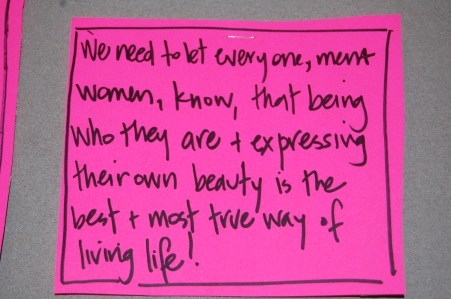 We need to let everyone, men +
women, know, that being
who they are + expressing
their own beauty is the
best + most true way of
living life!